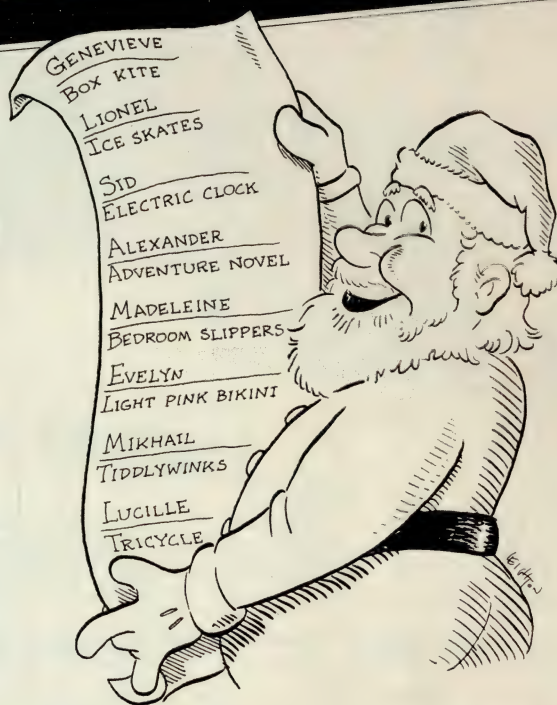 GENEVIEVE
BOX KITE
LIONEL
ICE SKATES
SID
ELECTRIC CLOCK
ALEXANDER
ADVENTURE NOVEL
MADELEINE
BEDROOM SLIPPERS
EVELYN
LIGHT PINK BIKINI
MIKHAIL
TIDDLYWINKS
LUCILLE
TRICYCLE
LEIGHTON